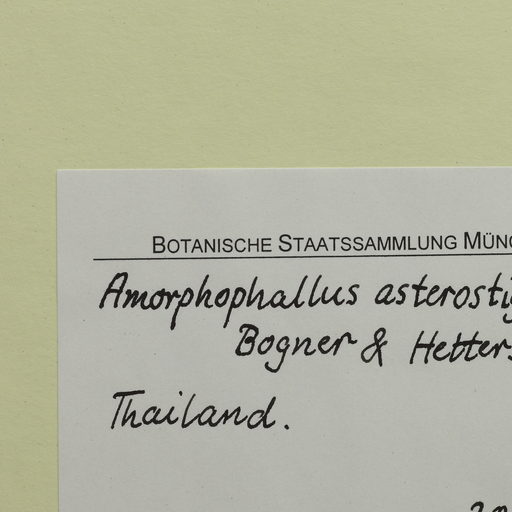 BOTANISCHE STAATSSAMMLUNG MÜN
Amorphophallus asterosti
Bogner & Hetters
Thailand.